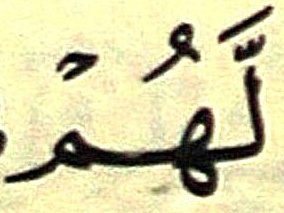 لَّهُمْ